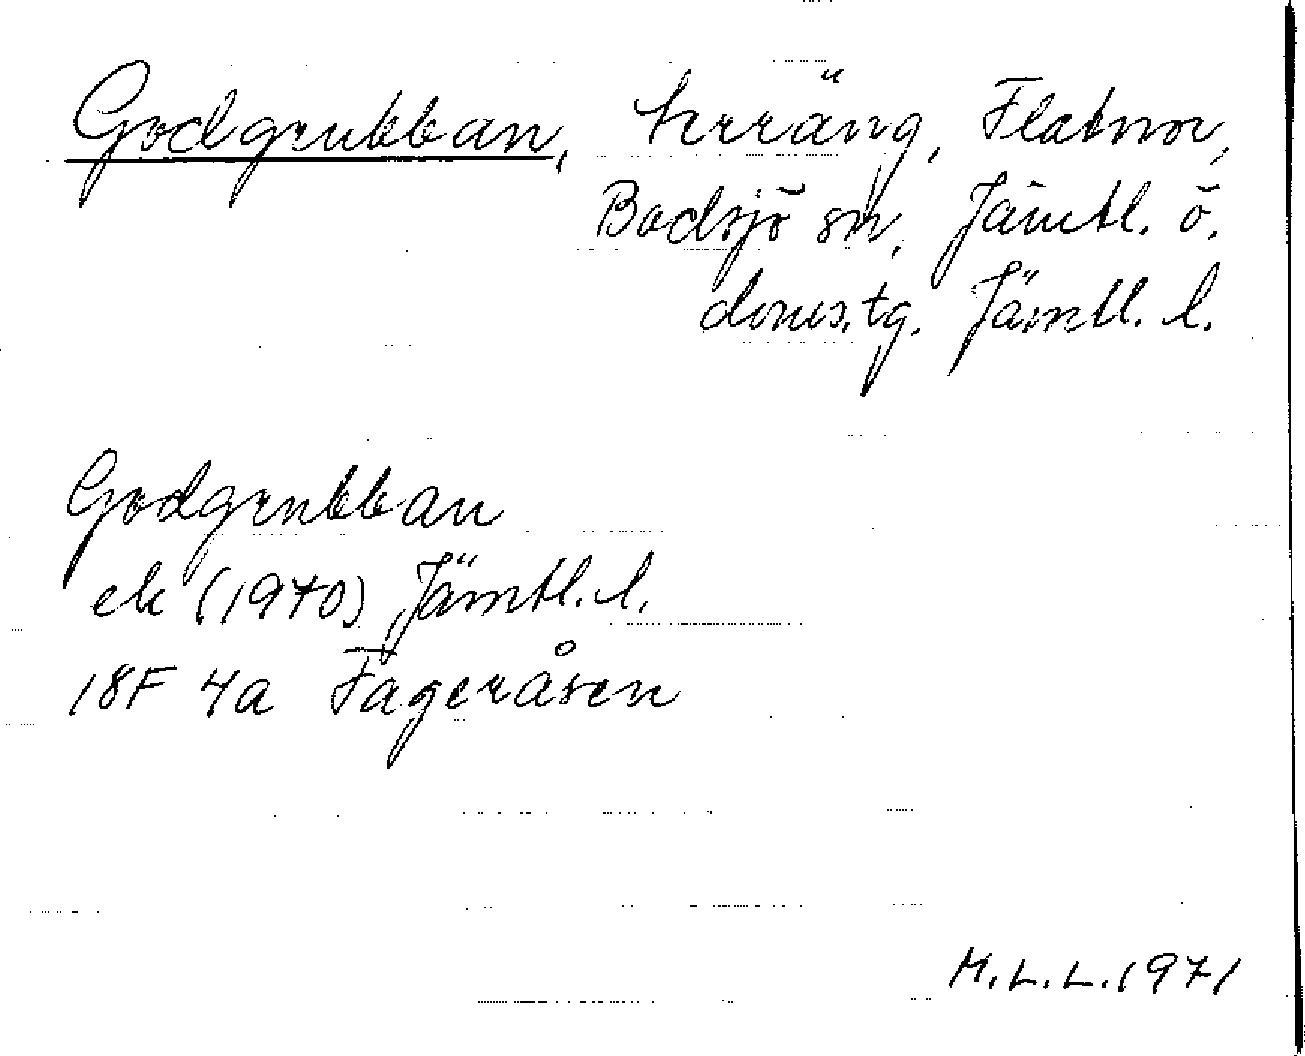 Godgrubban, terräng, Flatnor,
Bodsjö sn, Jämtl. ö.
doms.tg. Jämtl. l.
Godgrubban
ek (1970) Jämtl. l.
18F 4a Fageråsen
M.L.L. 1971